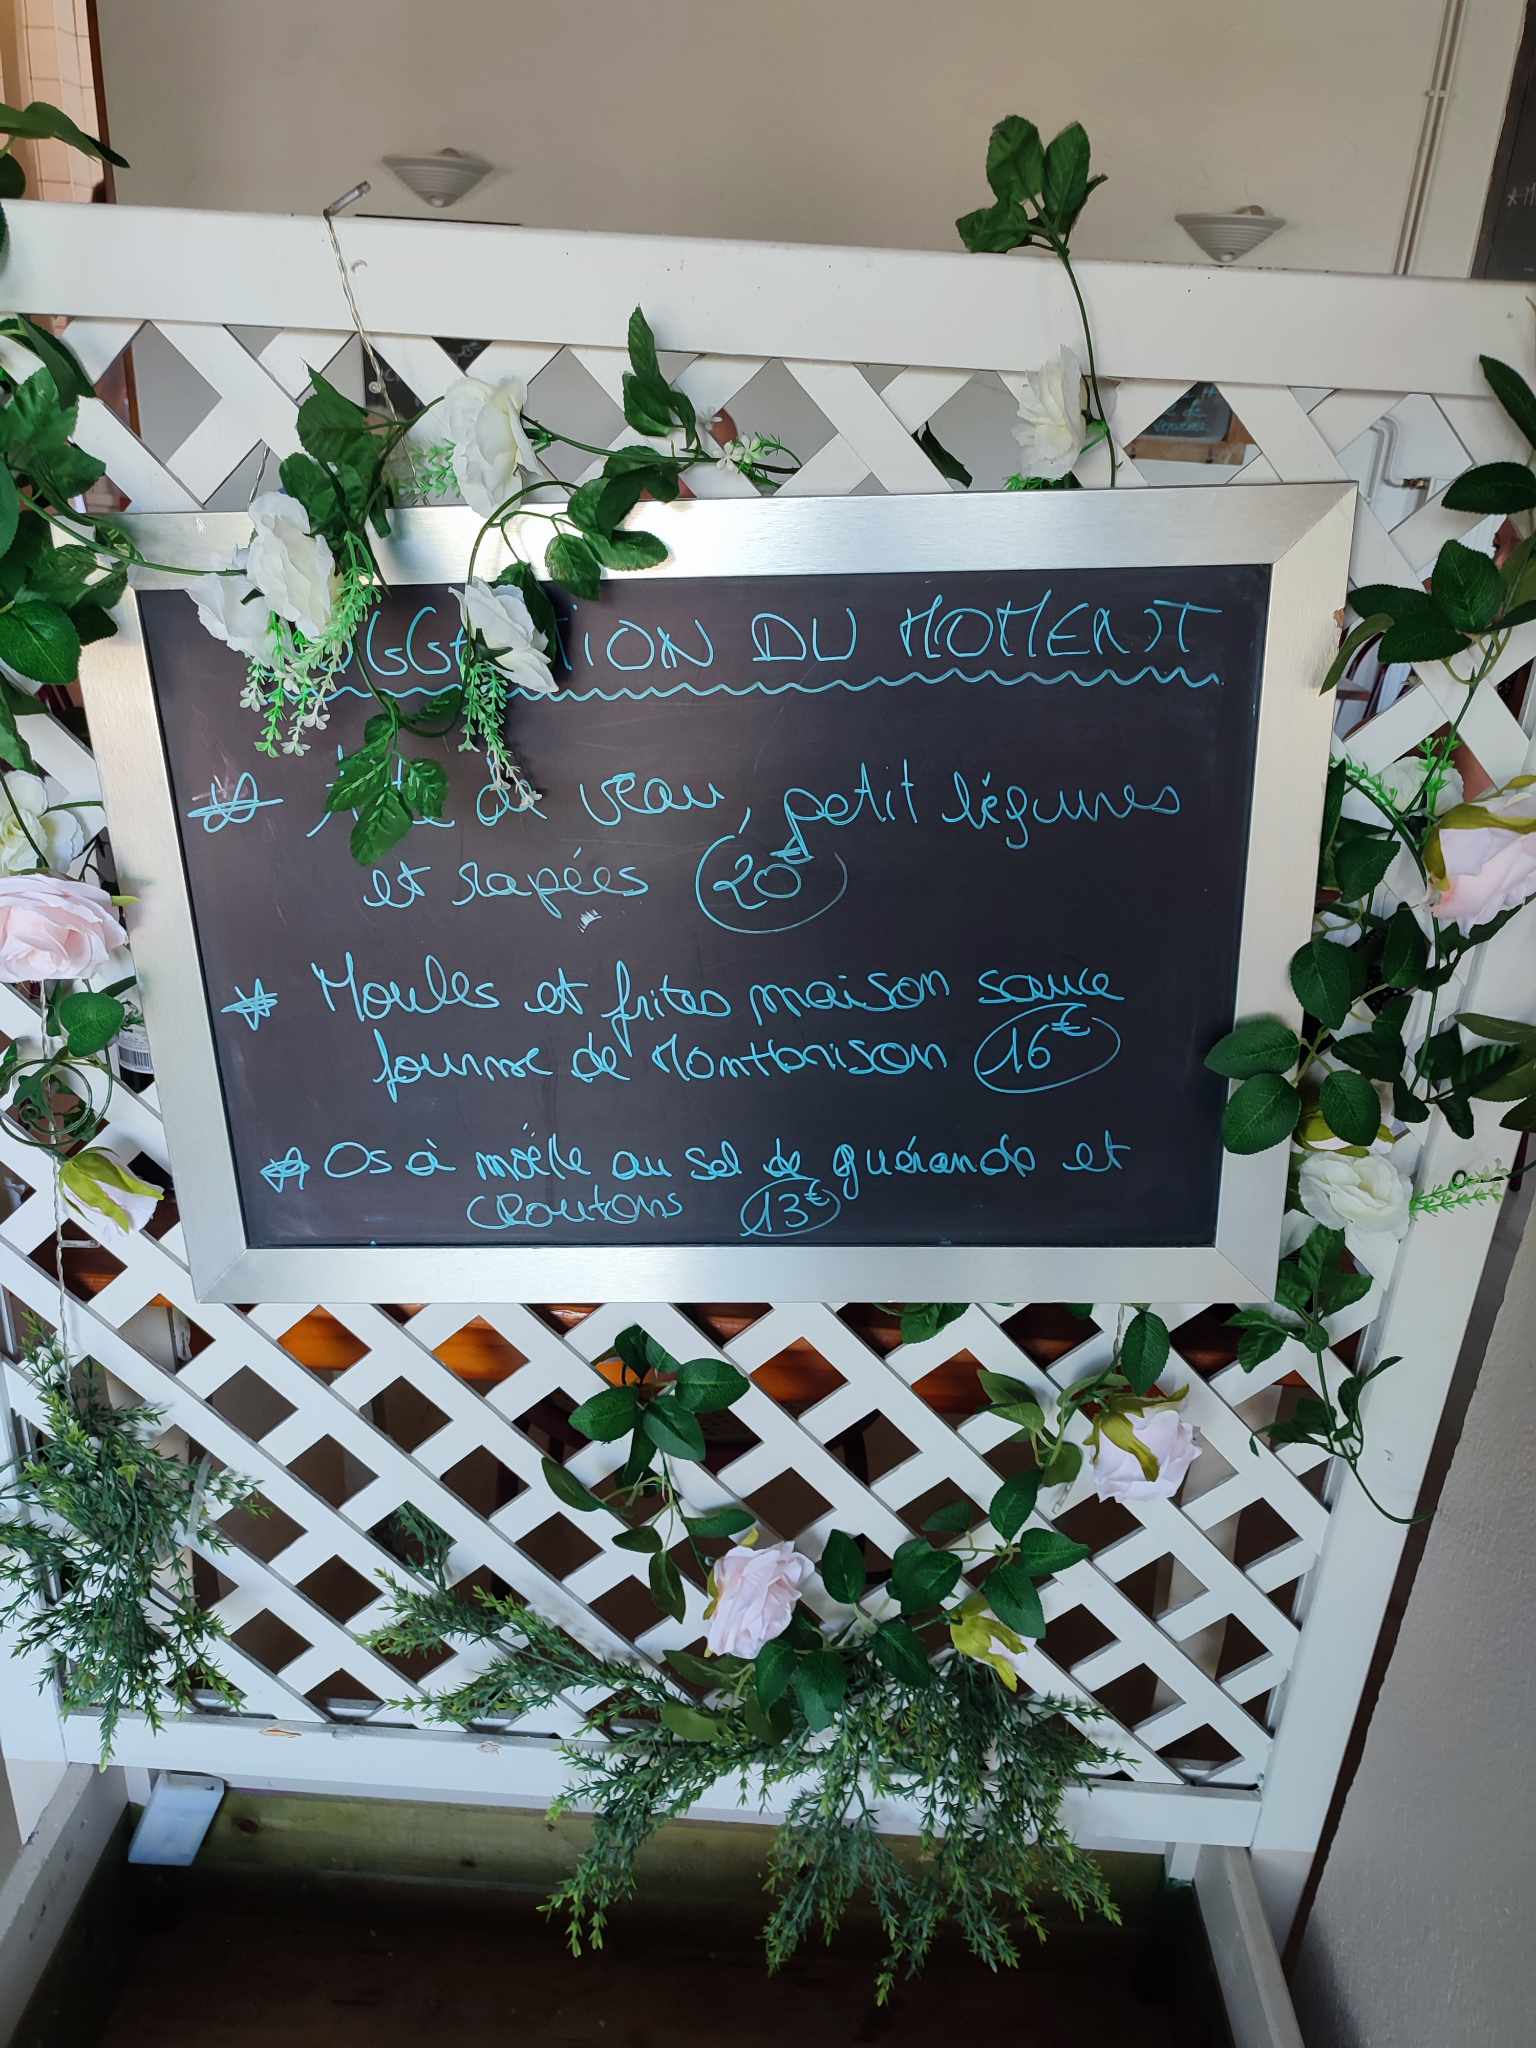 TION DU MOMENT
de veau, petit légumes
et rapées 20€
Moules et frites maison sauce
fourme de Montbrison 16€
Os à moëlle au sel de guérande et
CROUTONS 13€